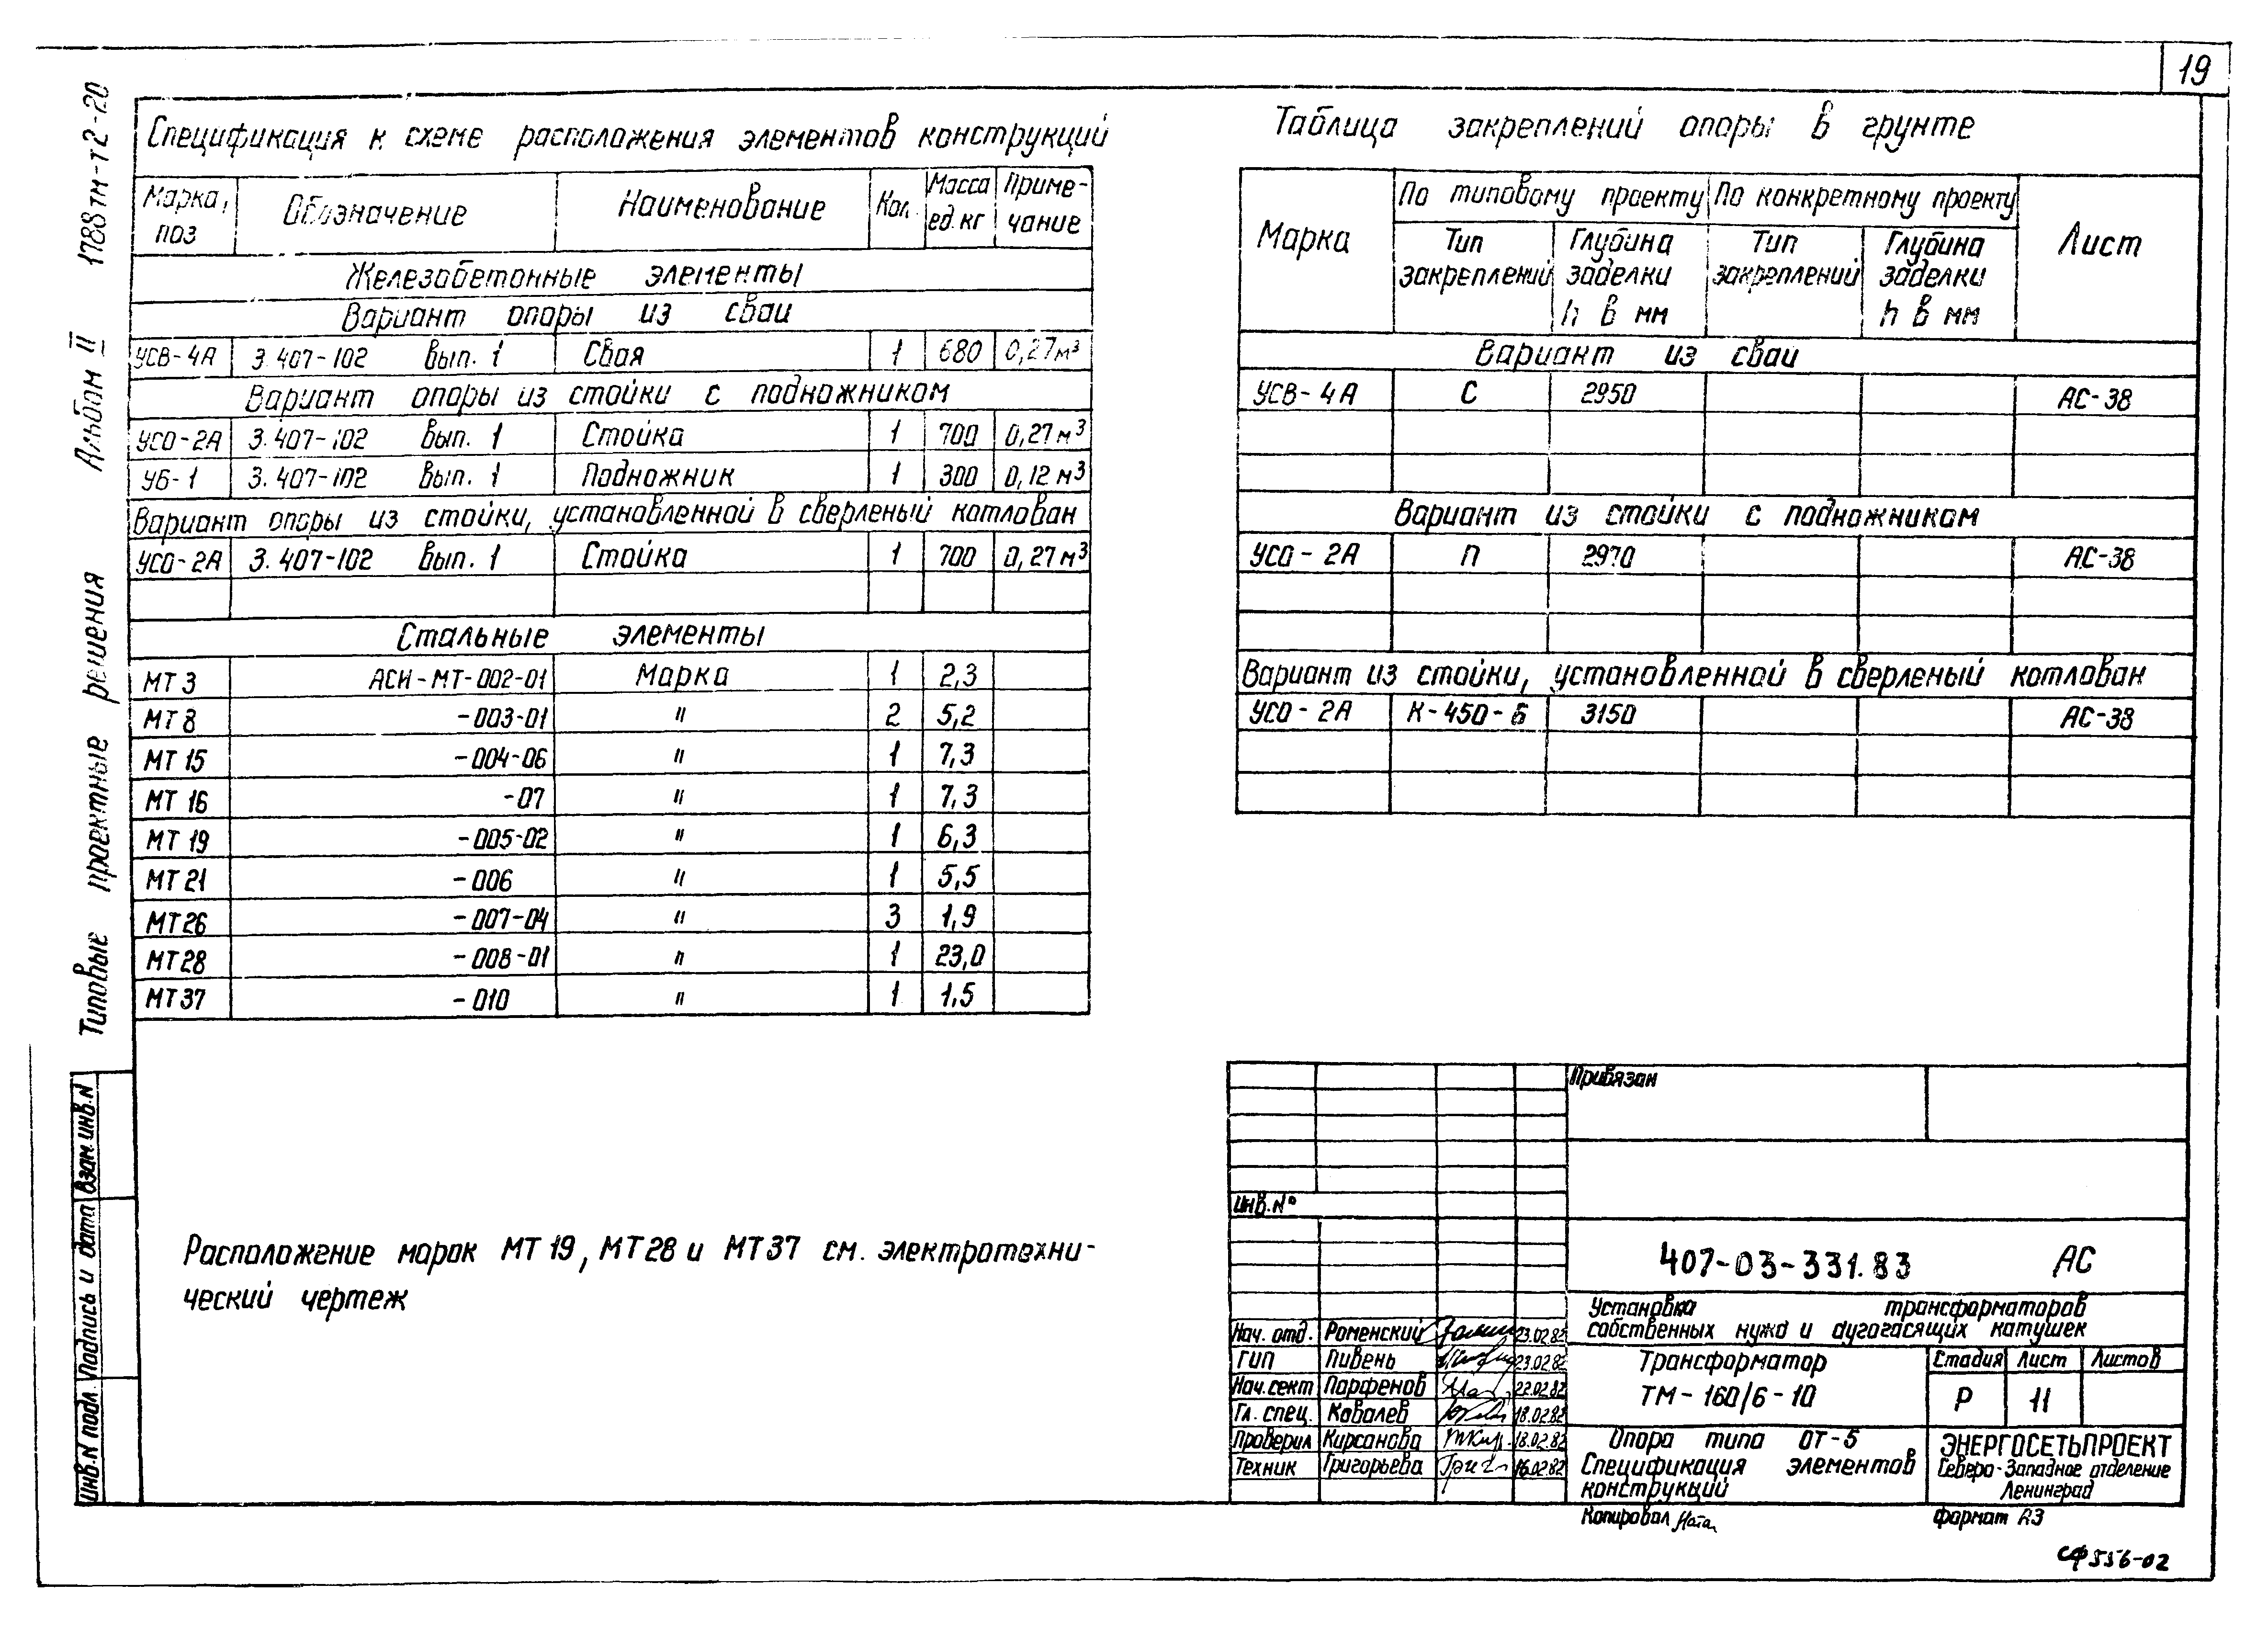 19
Типовые проектные решения Альбом II 1788тм-т2-20
Спецификация к схеме расположения элементов конструкций
Марка, поз Обозначение Наименование Кол. Масса ед. кг Приме-чание
Железобетонные элементы
Вариант опоры из сваи
УСВ-4А 3.407-102 Вып. 1 Свая 1 680 0,27м³
Вариант опоры из стойки с подножником
УСО-2А 3.407-102 Вып. 1 Стойка 1 700 0,27м³
УБ-1 3.407-102 Вып. 1 Подножник 1 300 0,12м³
Вариант опоры из стойки, установленной в сверленый котлован
УСО-2А 3.407-102 Вып. 1 Стойка 1 700 0,27м³
Стальные элементы
МТ3 АСИ-МТ-002-01 Марка 1 2,3
МТ8 -003-01 " 2 5,2
МТ15 -004-06 " 1 7,3
МТ16 -07 " 1 7,3
МТ19 -005-02 " 1 6,3
МТ21 -006 " 1 5,5
МТ26 -007-04 " 3 1,9
МТ28 -008-01 " 1 23,0
МТ37 -010 " 1 1,5
Расположение марок МТ19, МТ28 и МТ37 см. электротехни-
ческий чертеж
Таблица закреплений опоры в грунте
Марка По типовому проекту По конкретному проекту Лист
Тип закреплений Глубина заделки h в мм Тип закреплений Глубина заделки h в мм
Вариант из сваи
УСВ-4А С 2950 АС-38
Вариант из стойки с подножником
УСО-2А П 2970 АС-38
Вариант из стойки, установленной в сверленый котлован
УСО-2А К-450-Б 3150 АС-38
Привязан
Инв.№
407-03-331.83 АС
Установка трансформаторов
собственных нужд и дугогасящих катушек
Нач. отд. Роменский 23.02.82
ГИП Пивень 23.02.82
Нач. сект Парфенов 22.02.82
Гл. спец. Ковалев 18.02.82
Проверил Кирсанова 18.02.82
Техник Григорьева 16.02.82
Трансформатор
ТМ-160/6-10
Стадия Лист Листов
Р 11
Опора типа ОТ-5
Спецификация элементов
конструкций
ЭНЕРГОСЕТЬПРОЕКТ
Северо-Западное отделение
Ленинград
Копировал
формат А3
СФ556-02
Инв.N подл. Подпись и дата Взам.инв.N